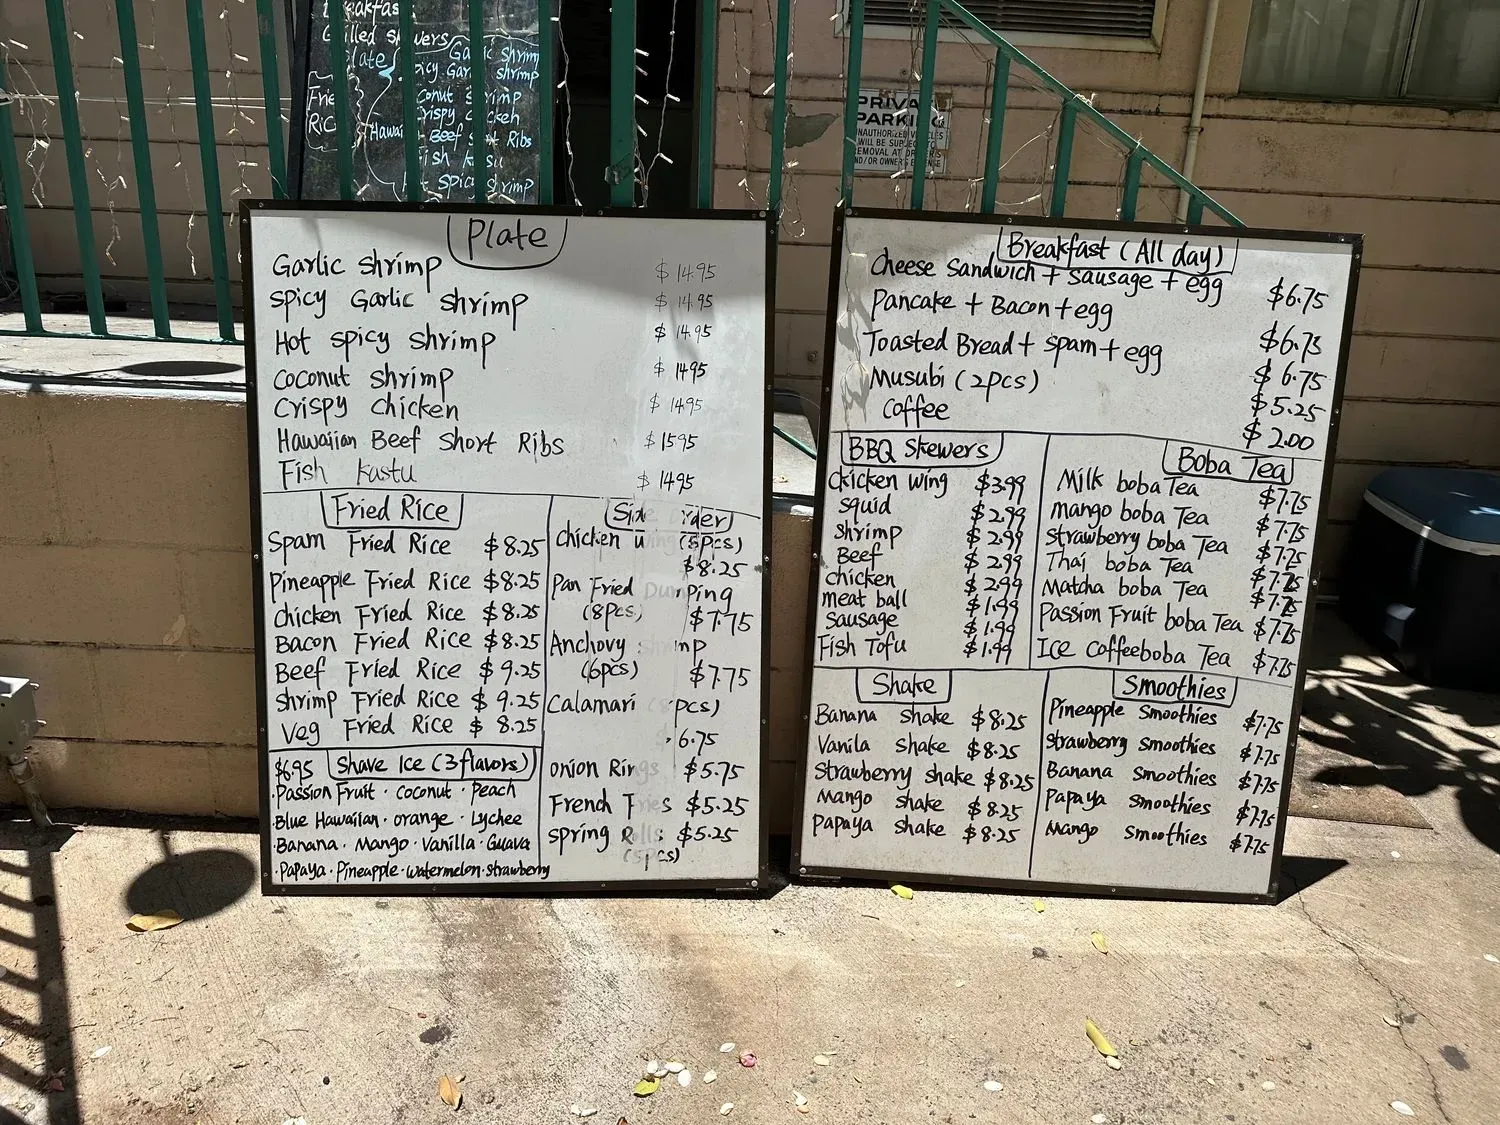 Plate
Garlic shrimp $14.95
Spicy Garlic shrimp $14.95
Hot spicy shrimp $14.95
Coconut shrimp $14.95
Crispy chicken $14.95
Hawaiian Beef Short Ribs $15.95
Fish kastu $14.95
Fried Rice
Spam Fried Rice $8.25
Pineapple Fried Rice $8.25
Chicken Fried Rice $8.25
Bacon Fried Rice $8.25
Beef Fried Rice $9.25
Shrimp Fried Rice $9.25
Veg Fried Rice $8.25
$6.95 Shave Ice (3 flavors)
·Passion Fruit · Coconut · Peach
Blue Hawaiian · Orange · Lychee
·Banana · Mango · Vanilla · Guava
·Papaya · Pineapple · watermelon · strawberry
Side order
Chicken wing (5pcs)
$8.25
Pan Fried Dumping
(8pcs) $7.75
Anchovy shrimp
(6pcs) $7.75
Calamari pcs)
6.75
Onion Rings $5.75
French Fries $5.25
Spring Rolls $5.25
(5pcs)
Breakfast (All day)
Cheese Sandwich + Sausage + egg $6.75
Pancake + Bacon + egg $6.75
Toasted Bread + spam + egg $6.75
Musubi (2pcs) $5.25
Coffee $2.00
BBQ Skewers
Chicken wing $3.99
Squid $2.99
Shrimp $2.99
Beef $2.99
Chicken $2.99
meat ball $1.99
Sausage $1.99
Fish Tofu $1.99
Boba Tea
Milk boba Tea $7.75
Mango boba Tea $7.75
Strawberry boba Tea $7.75
Thai boba Tea $7.75
Matcha boba Tea $7.75
Passion Fruit boba Tea $7.75
Ice Coffee boba Tea $7.75
Shake
Banana shake $8.25
Vanila shake $8.25
Strawberry shake $8.25
Mango shake $8.25
Papaya shake $8.25
Smoothies
Pineapple Smoothies $7.75
Strawberry Smoothies $7.75
Banana Smoothies $7.75
Papaya Smoothies $7.75
Mango Smoothies $7.75
Plate
Garlic shrimp
shrimp
Fish
PRIVATE
PARKING
UNAUTHORIZED VEHICLES
WILL BE SUBJECT TO
REMOVAL AT OWNER'S
AND/OR OWNER'S EXPENSE